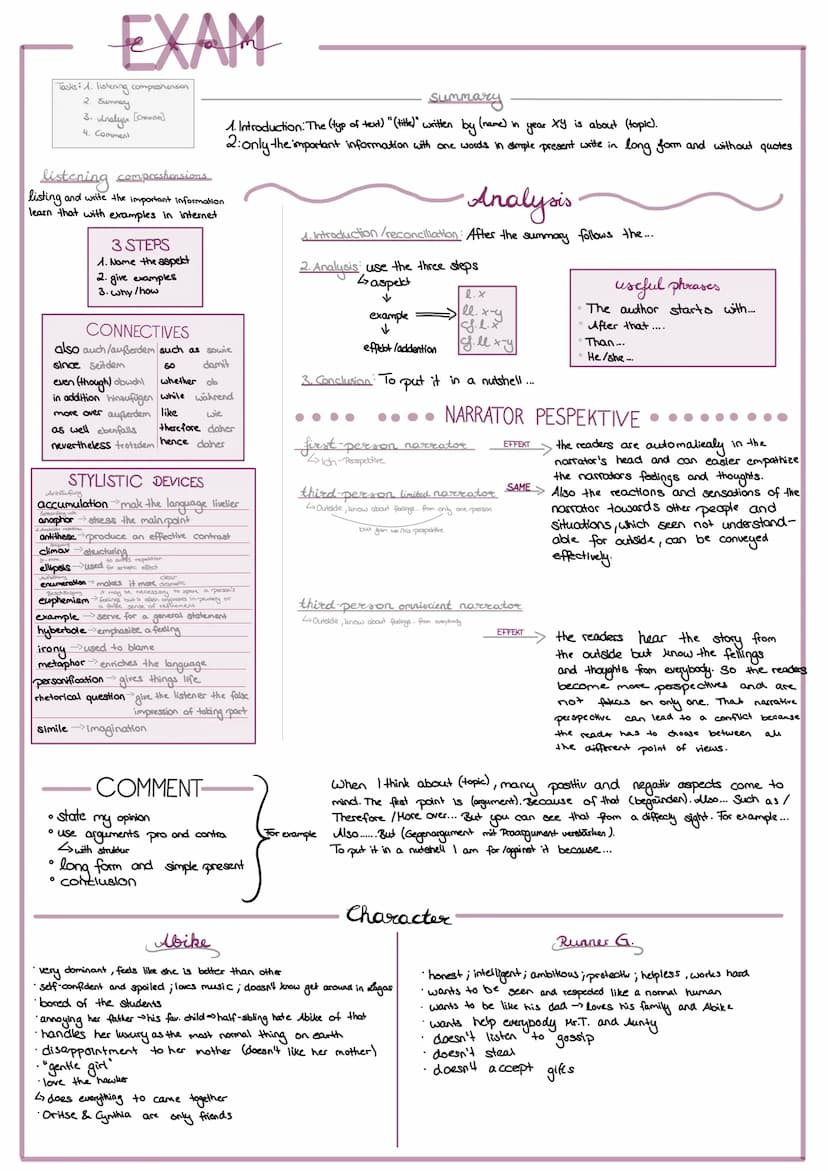 EXAM
exam
Tasks: 1. listening comprehension
2. Summary
3. Analysis [Comment]
4. Comment
summary
1. Introduction: The (typ of text) "(title)" written by (name) in year XY is about (topic).
2: only the important information with one words in simple present write in long form and without quotes
listening comprehensions
listing and write the important information
learn that with examples in internet
3 STEPS
1. Name the aspekt
2. give examples
3. why/how
CONNECTIVES
also auch/außerdem such as sowie
since seitdem so damit
even (though) obwohl whether ob
in addition hinzufügen while während
more over außerdem like wie
as well ebenfalls therefore daher
nevertheless trotzdem hence daher
STYLISTIC DEVICES
accumulation → mak the language livelier
anaphor → stress the main point
antithese → produce an effective contrast
climax → stucturing
ellipsis → used for artistic effect
enumeration → makes it more clear dramatic
euphemism → it may be necessary to spare a person's
feelings but is often originates in prudery or
a false sense of refinement
example → serve for a general statement
hyperbole → emphasize a feeling
irony → used to blame
metaphor → enriches the language
personification → gives things life
rhetorical question → give the listener the false
impression of taking part
simile → imagination
Analysis
1. Introduction/reconciliation: After the summary follows the...
2. Analysis: use the three steps
↳ aspekt
↓
example ⟹
↓
effekt/addention
l. x
ll. x-y
cf. l. x
cf. ll x-y
useful phrases
The author starts with...
After that ....
Than...
He/she...
3. Conclusion: To put it in a nutshell ...
NARRATOR PESPEKTIVE
first-person narrator EFFEKT →
↳ Ich-Perspektive
third-person limited narrator SAME →
↳ Outside, know about feelings.. from only one person
the readers are automaticaly in the
narrator's head and can easier empathize
the narrators feelings and thoughts.
Also the reactions and sensations of the
narrator towards other people and
situations, which seen not understand-
able for outside, can be conveyed
effectively.
third person omniscient narrator
↳ Outside, know about feelings.. from everybody
EFFEKT →
the readers hear the story from
the outside but know the fellings
and thoughts from everybody. So the readers
become more perspectives and are
not fokus on only one. That narrative
perspective can lead to a conflict because
the reader has to choose between all
the different point of views.
COMMENT
° state my opinion
° use arguments pro and contra
↳ with struktur
° long form and simple present
° conclusion
For example
When I think about (topic), many positiv and negativ aspects come to
mind. The first point is (argument). Because of that (begründen). Also... Such as/
Therefore /More over... But you can see that from a differely sight. For example...
Also...... But (Gegenargument mit Proargument verstärken).
To put it in a nutshell I am for/against it because...
Character
Abike
· very dominant, feels like she is better than other
· self-confident and spoiled; loves music; doesn't know get around in Lagos
· bored of the students
· annoying her father → his fav. child ⇒ half-sibling hate Abike of that
· handles her luxury as the most normal thing on earth
· disappointment to her mother (doesn't like her mother)
· "gentle girl"
· love the hawker
↳ does everything to came together
· Oritse & Cynthia are only friends
Runner G.
· honest; intelligent; ambitious; protectiv; helpless, works hard
· wants to be seen and respeded like a normal human
· wants to be like his dad → loves his family and Abike
· wants help everybody Mr.T. and Aunty
· doesn't listen to gossip
· doesn't steal
· doesn't accept gifts